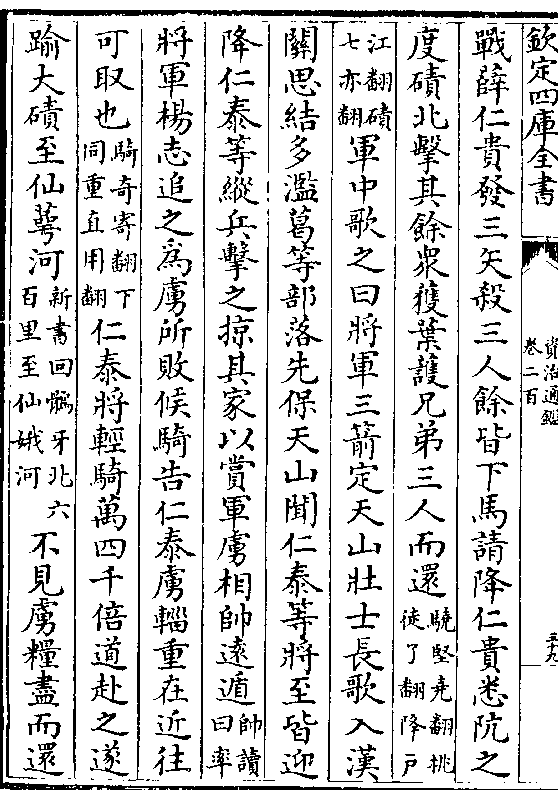 欽定四庫全書
資治通鑑
卷二百
戰薛仁貴發三矢殺三人餘皆下馬請降仁貴悉阬之
度磧北擊其餘衆獲葉護兄弟三人而還驍堅堯翻挑
徒了翻降戸
江翻磧
七亦翻軍中歌之曰將軍三箭定天山壯士長歌入漢
關思結多濫葛等部落先保天山聞仁泰等將至皆迎
降仁泰等縱兵擊之掠其家以賞軍虜相帥遠遁帥讀
曰率
將軍楊志追之爲虜所敗候騎告仁泰虜輜重在近往
可取也騎奇寄翻下
同重直用翻仁泰將輕騎萬四千倍道赴之遂
踰大磧至仙萼河新書回鶻牙北六
百里至仙娥河不見虜糧盡而還